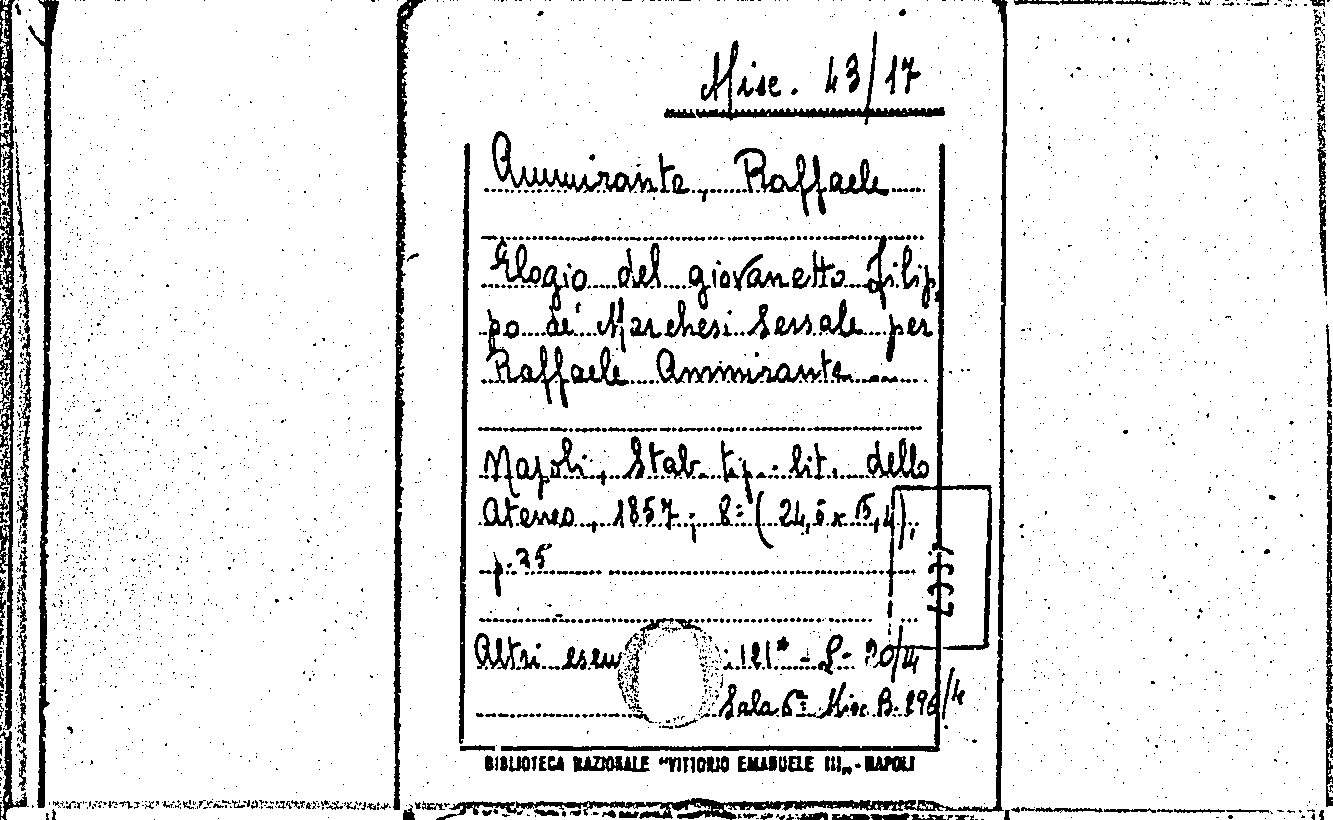 Misc. 43/17
Ammirante, Raffaele
Elogio del giovanetto Filip,
po de' Marchesi Sersale per
Raffaele Ammirante
Napoli, Stab. tip. lit. dello
Ateneo, 1857; 8º (24,5 x 15,4),
p. 35
Altri esem 121* - L- 20/4
Sala 6ª Misc B. 296/4
BIBLIOTECA NAZIONALE "VITTORIO EMANUELE III„ - NAPOLI